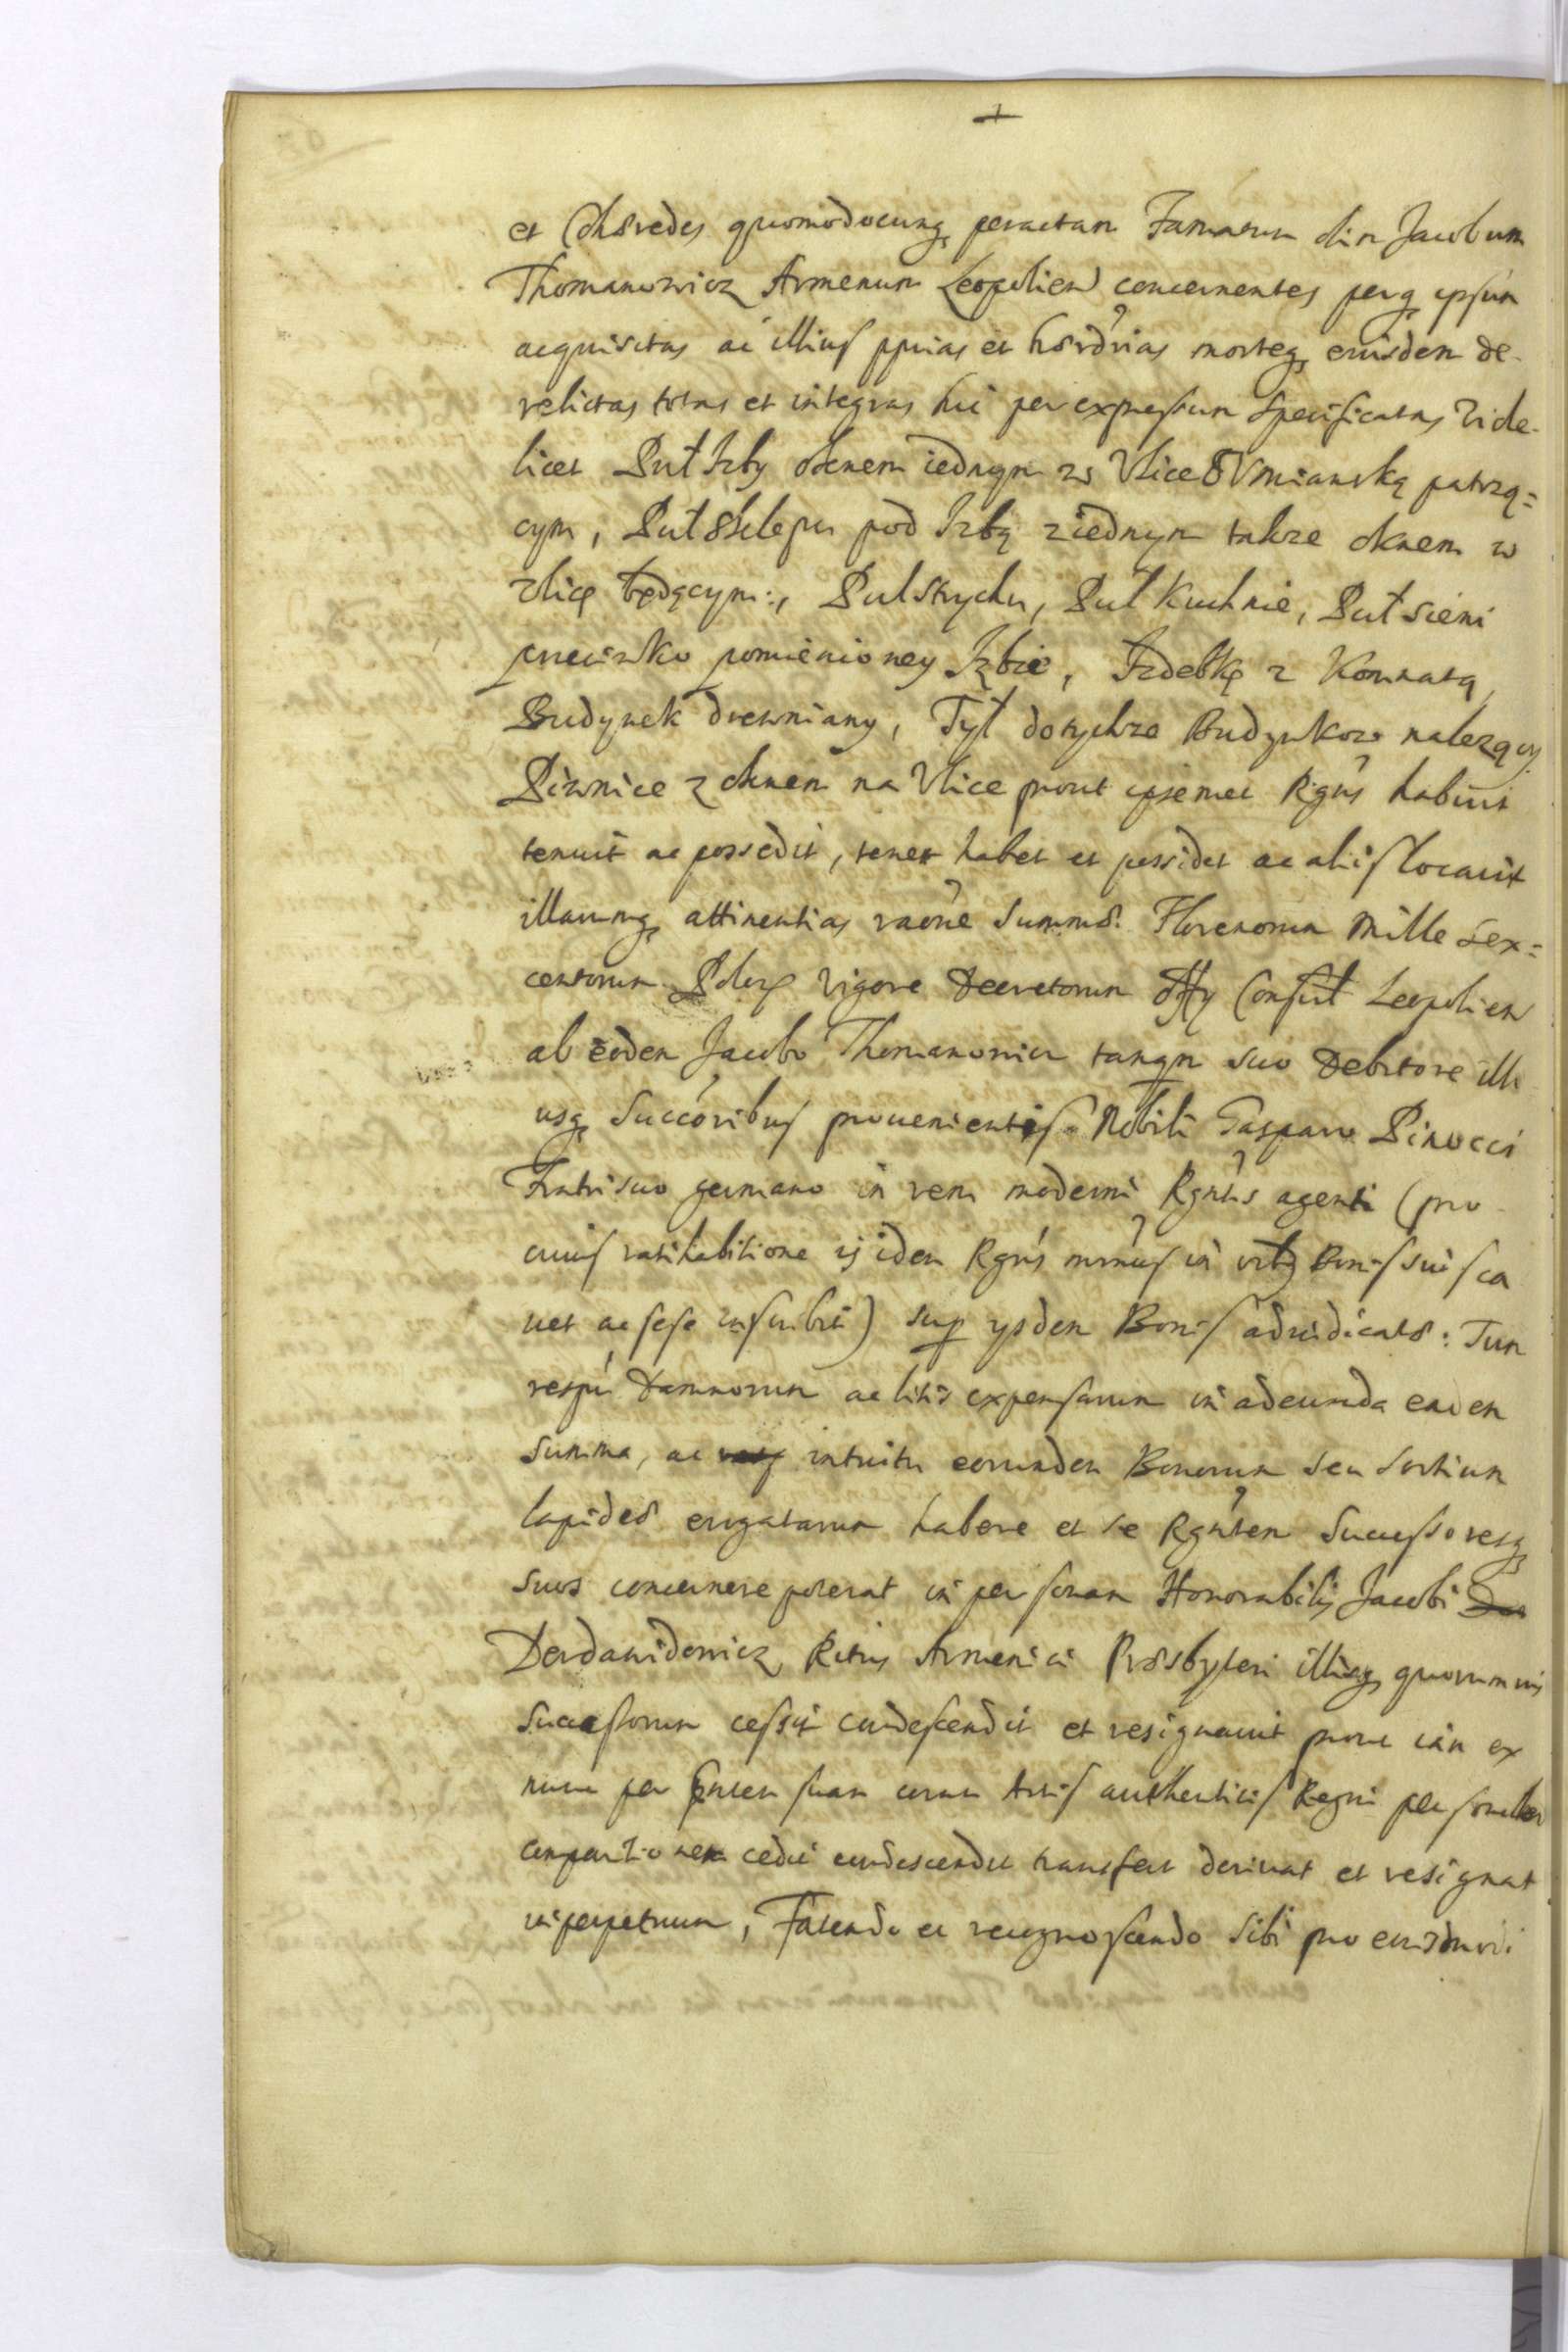 et Cohæredes quomodocunq peractam Famatum olim Jacobum
Thomanowicz Armenum Leopolien concernentes perq ipsum
acquisitas ac illius pprias et hærdrias morteq eiusdem de-
relictas totas et integras hic per expressum specificatas Vide-
licet Puł Izby oknem iednym w Vlice Ormianską patrzą=
cym, Puł Sklepu pod Izbą ziednym takze oknem w
Vlicę będącym:, Puł Strychu, Puł Kuchnie, Puł sieni
przeciwko pomienioney Izbie, Izdebkę z Komnatą,
Budynek drewniany, Tył dotychze Budynkow nalezący
Piwnice z oknem na Vlice prout ipsemet Rgns habuit
tenuit ac possedit, tenet habet et possidet ac aliis locavit
illarumq attinentias raone Summæ Florenorum Mille Sex=
centorum Polon Vigore Decretorum Offy Consul Leopolien
ab eodem Jacobo Thomanowicz tanqm suo Debitore illi
usq Succoribus provenientis Nobili Gasparo Pinocci
Fratri suo germano in rem moderni Rgntis agenti (pro
cuius ratihabitione is idem Rgns in Bonis suis ca
vet ac sese inscribit) sup ysdem Bonis adiudicatæ: Tum
respu Damnorum ac litis expensarum in adeunda eadem
summa, ac intuitu eorundem Bonorum seu sortium
lapideæ erogatarum habere et se Rgntem Successoresq
suos concernere poterat in personam Honorabilis Jacobi
Derdawidowicz Ritus Armenici Præsbyteri illiusq quorumvis
Successorum cessit condescendit et resignavit prout iam ex
nunc per pntem suam coram Actis authenticis Regni personalem
comparitionem cedit condescendit transfert derivat et resignat
in perpetuum, Fatendo et recognoscendo sibi pro eiusdmodi